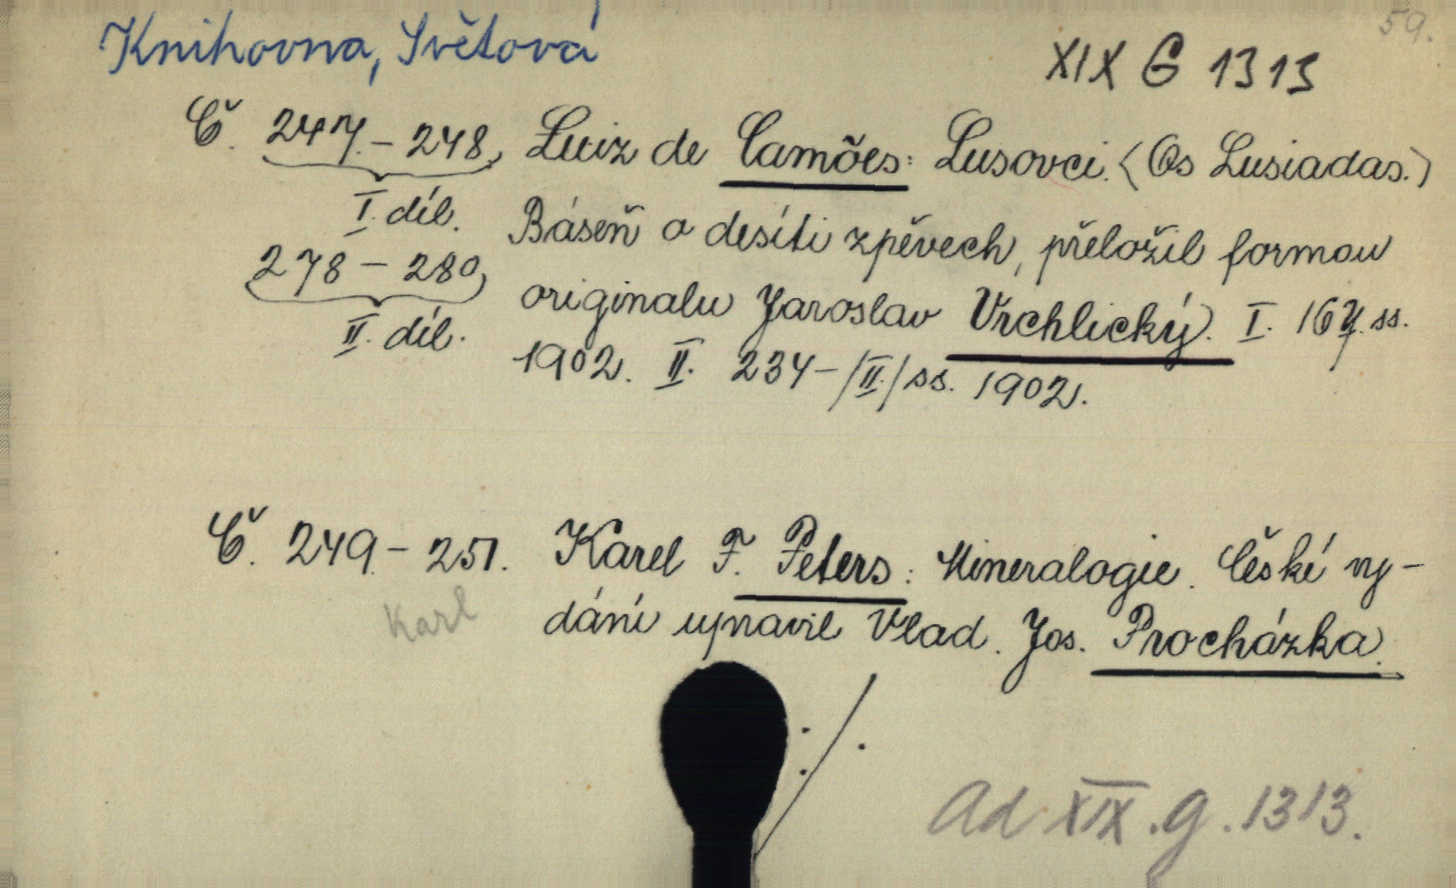 59.
Knihovna, Světová
XIX G 1313
Č. 247.-248, Luiz de Camões: Lusovci. (Os Lusiadas.)
I. díl. Báseň o desíti zpěvech, přeložil formou
278-280, originalu Jaroslav Vrchlický. I. 167. ss.
II. díl. 1902. II. 234-/II./ss. 1902.
Č. 249.-251. Karel F. Peters: Mineralogie. České vy-
Karl dání upravil Vlad. Jos. Procházka.
Ad XIX.g.1313.